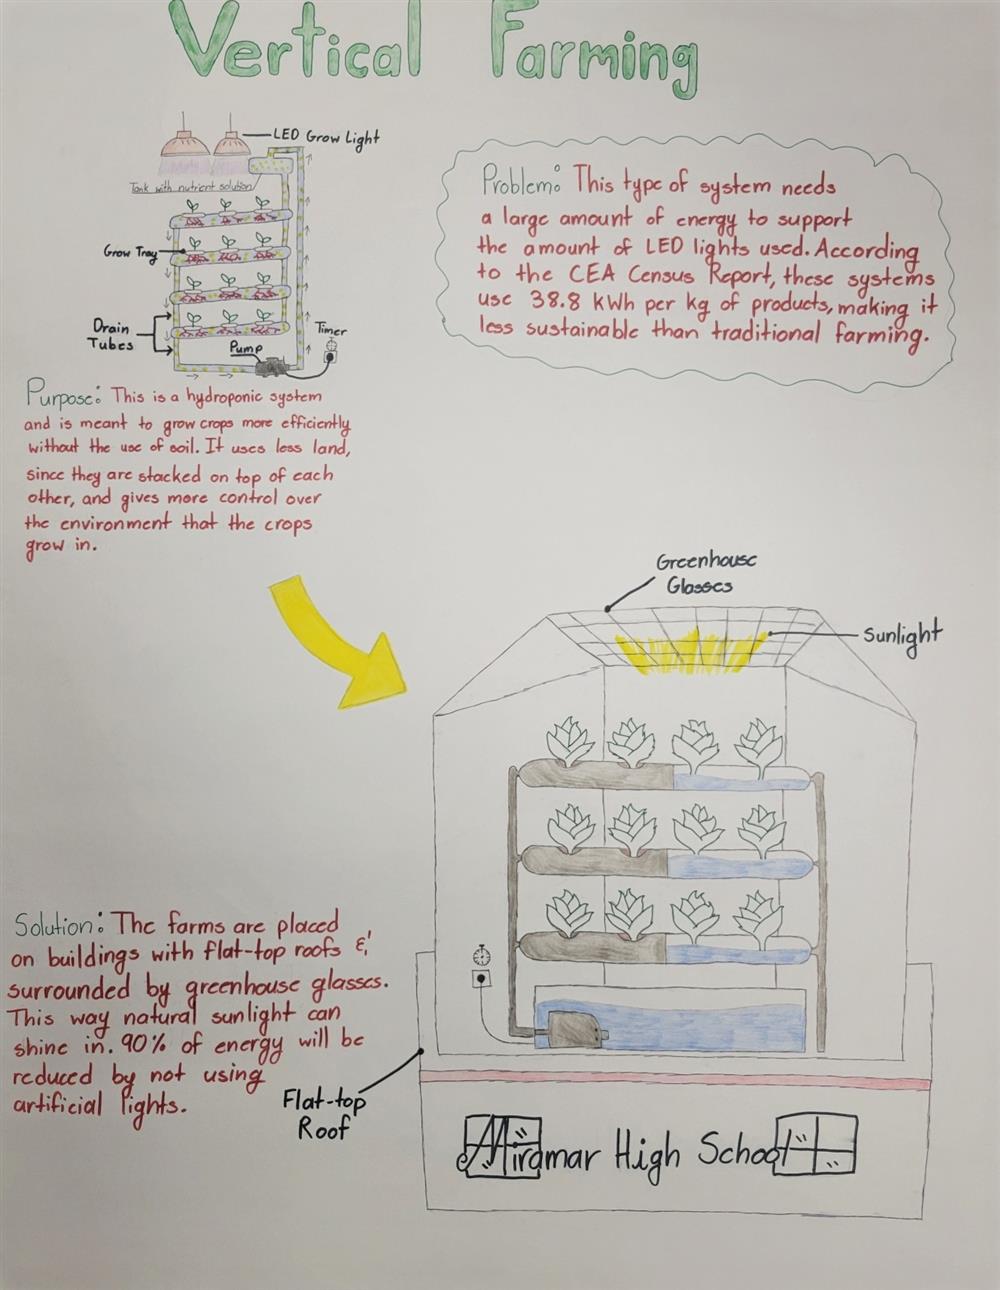 Vertical Farming
LED Grow Light
Tank with nutrient solution
Grow Tray
Drain
Tubes
Pump
Timer
Problem: This type of system needs
a large amount of energy to support
the amount of LED lights used. According
to the CEA Census Report, these systems
use 38.8 kWh per kg of products, making it
less sustainable than traditional farming.
Purpose: This is a hydroponic system
and is meant to grow crops more efficiently
without the use of soil. It uses less land,
since they are stacked on top of each
other, and gives more control over
the environment that the crops
grow in.
Greenhouse
Glasses
Sunlight
Solution: The farms are placed
on buildings with flat-top roofs &
surrounded by greenhouse glasses.
This way natural sunlight can
shine in. 90% of energy will be
reduced by not using
artificial lights.
Flat-top
Roof
Miramar High School